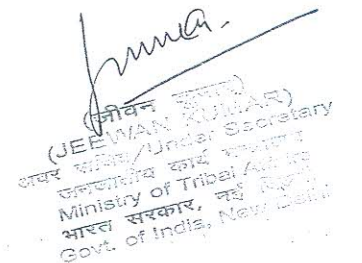 (जीवन कुमार)
(JEEWAN KUMAR)
अवर सचिव/Under Secretary
जनजातीय कार्य मंत्रालय
Ministry of Tribal Affairs
भारत सरकार, नई दिल्ली
Govt. of India, New Delhi